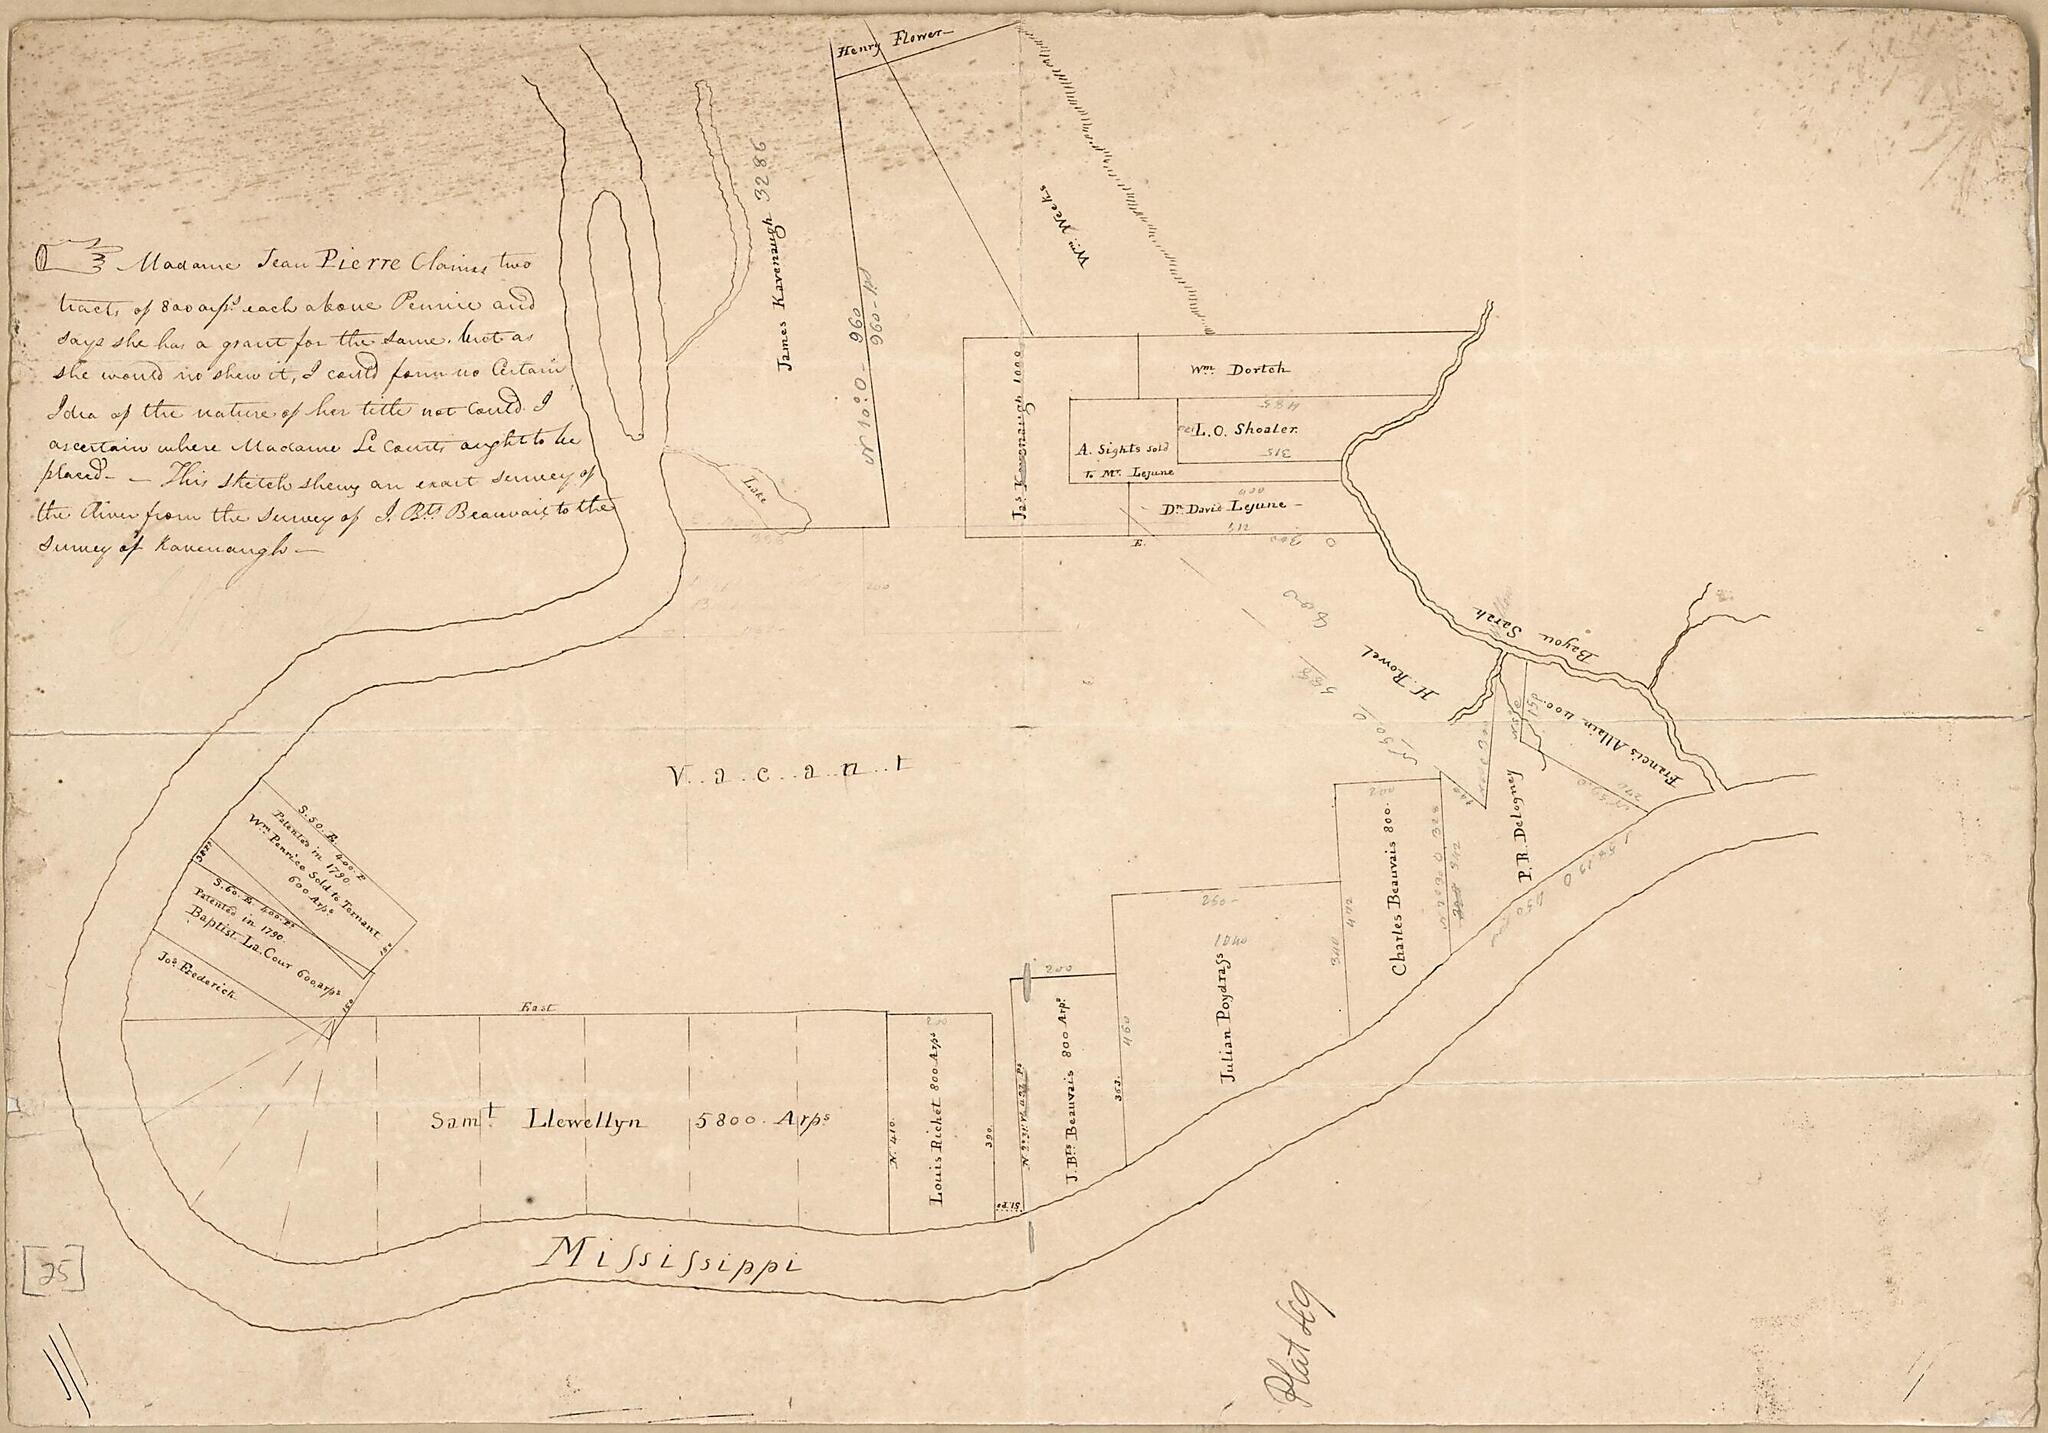 Henry Flower
Wm. Weeks
James Kavenaugh 32286
N 10:0 - 960
960 - Pd
Madame Jean Pierre Claims two
tracts of 800 arps. each above Pennie and
says she has a grant for the same. but as
she would no shew it, I could form no Certain
Idea of the nature of her title not Could I
ascertain where Madame Le Courts aught to be
placed — This sketch shews an exact survey of
the River from the survey of J. Bts Beauvais to the
survey of Kavenaugh —
Lake
Jas Kavenaugh 1000
Wm Dortch
485
L. O. Shoaler.
315
A. Sights sold
To Mr. Lejune
Dr. David Lejune
512
300
E.
Bayou Sarah
H. Rowel
800
Francis Allain 400
P. R. Delogney
Vacant
S. 50. E. 400. P
Patented in 1790.
Wm. Penrice Sold to Ternant
600 Arps
S. 60. E. 400. Ps
Patented in 1790.
Baptist La Cour 600 arps
150
Jos. Frederick
East
Saml. Llewellyn 5800. Arps
N. 410.
Louis Richet 800 Arps
390.
200
J. Bts Beauvais 800 Arps
363.
460
250
Julian Poydrass 1040
340
472
202
Charles Beauvais 800.
Mississippi
[25]
Plat 49